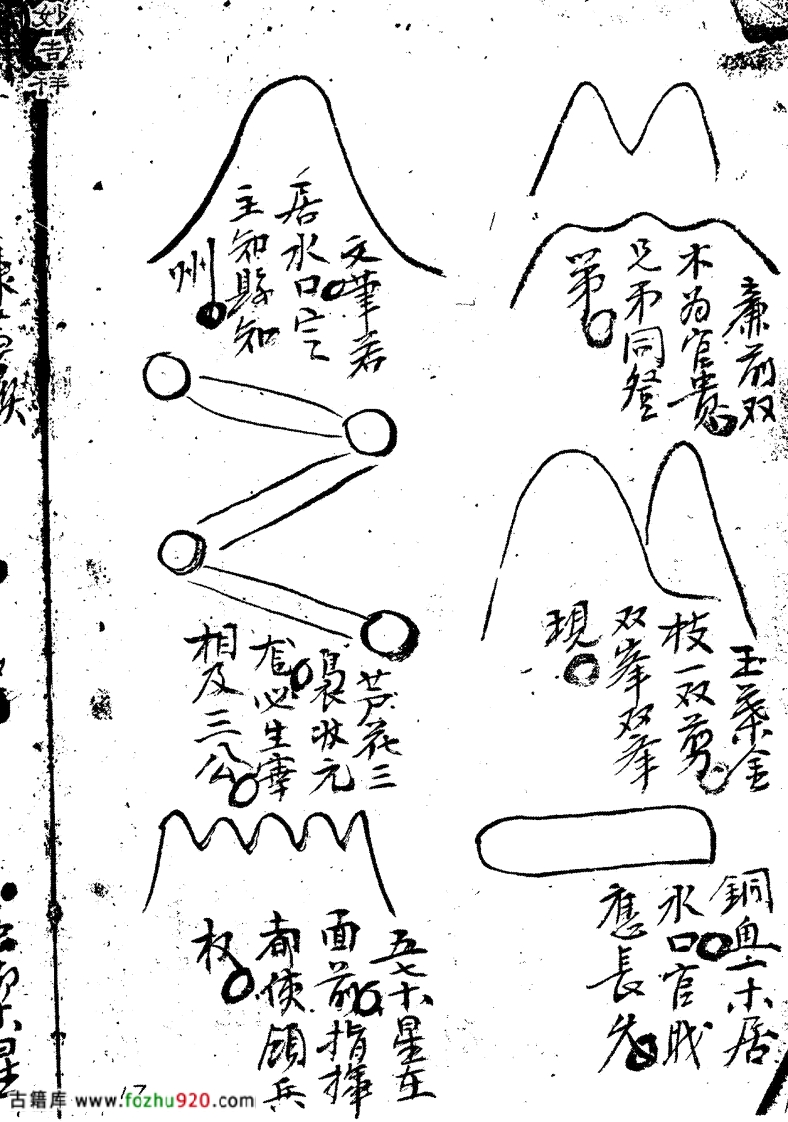 妙吉祥
廉前双
木为官贵
兄弟同登
第
玉葉金
枝一双剪
双峯双峯
現
銅魚一木居
水口官戝
應長久
文華若
居水口定
主知縣知
州
芦花三
裊状元
尨必生宰
相及三公
五七木星在
面前指揮
都使領兵
权
17
古籍库 www.fozhu920.com